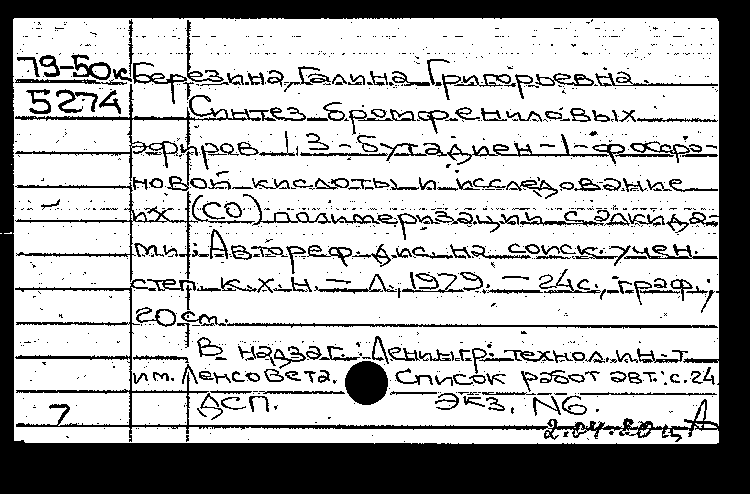 79-50к Березина, Галина Григорьевна.
5274 Синтез бромфениловых
эфиров 1,3-бутадиен-1-фосфо-
новой кислоты и исследование
их (СО)полимеризации с алкида-
ми: Автореф. дис. на соиск. учен.
степ. к.х.н. – Л., 1979. – 24с., граф.;
20 см.
В надзаг.: Ленингр. технол. ин-т
им. Ленсовета. Список работ авт.: с.24
ДСП. ЭКЗ. N6.
7
2.04.80 ц. А